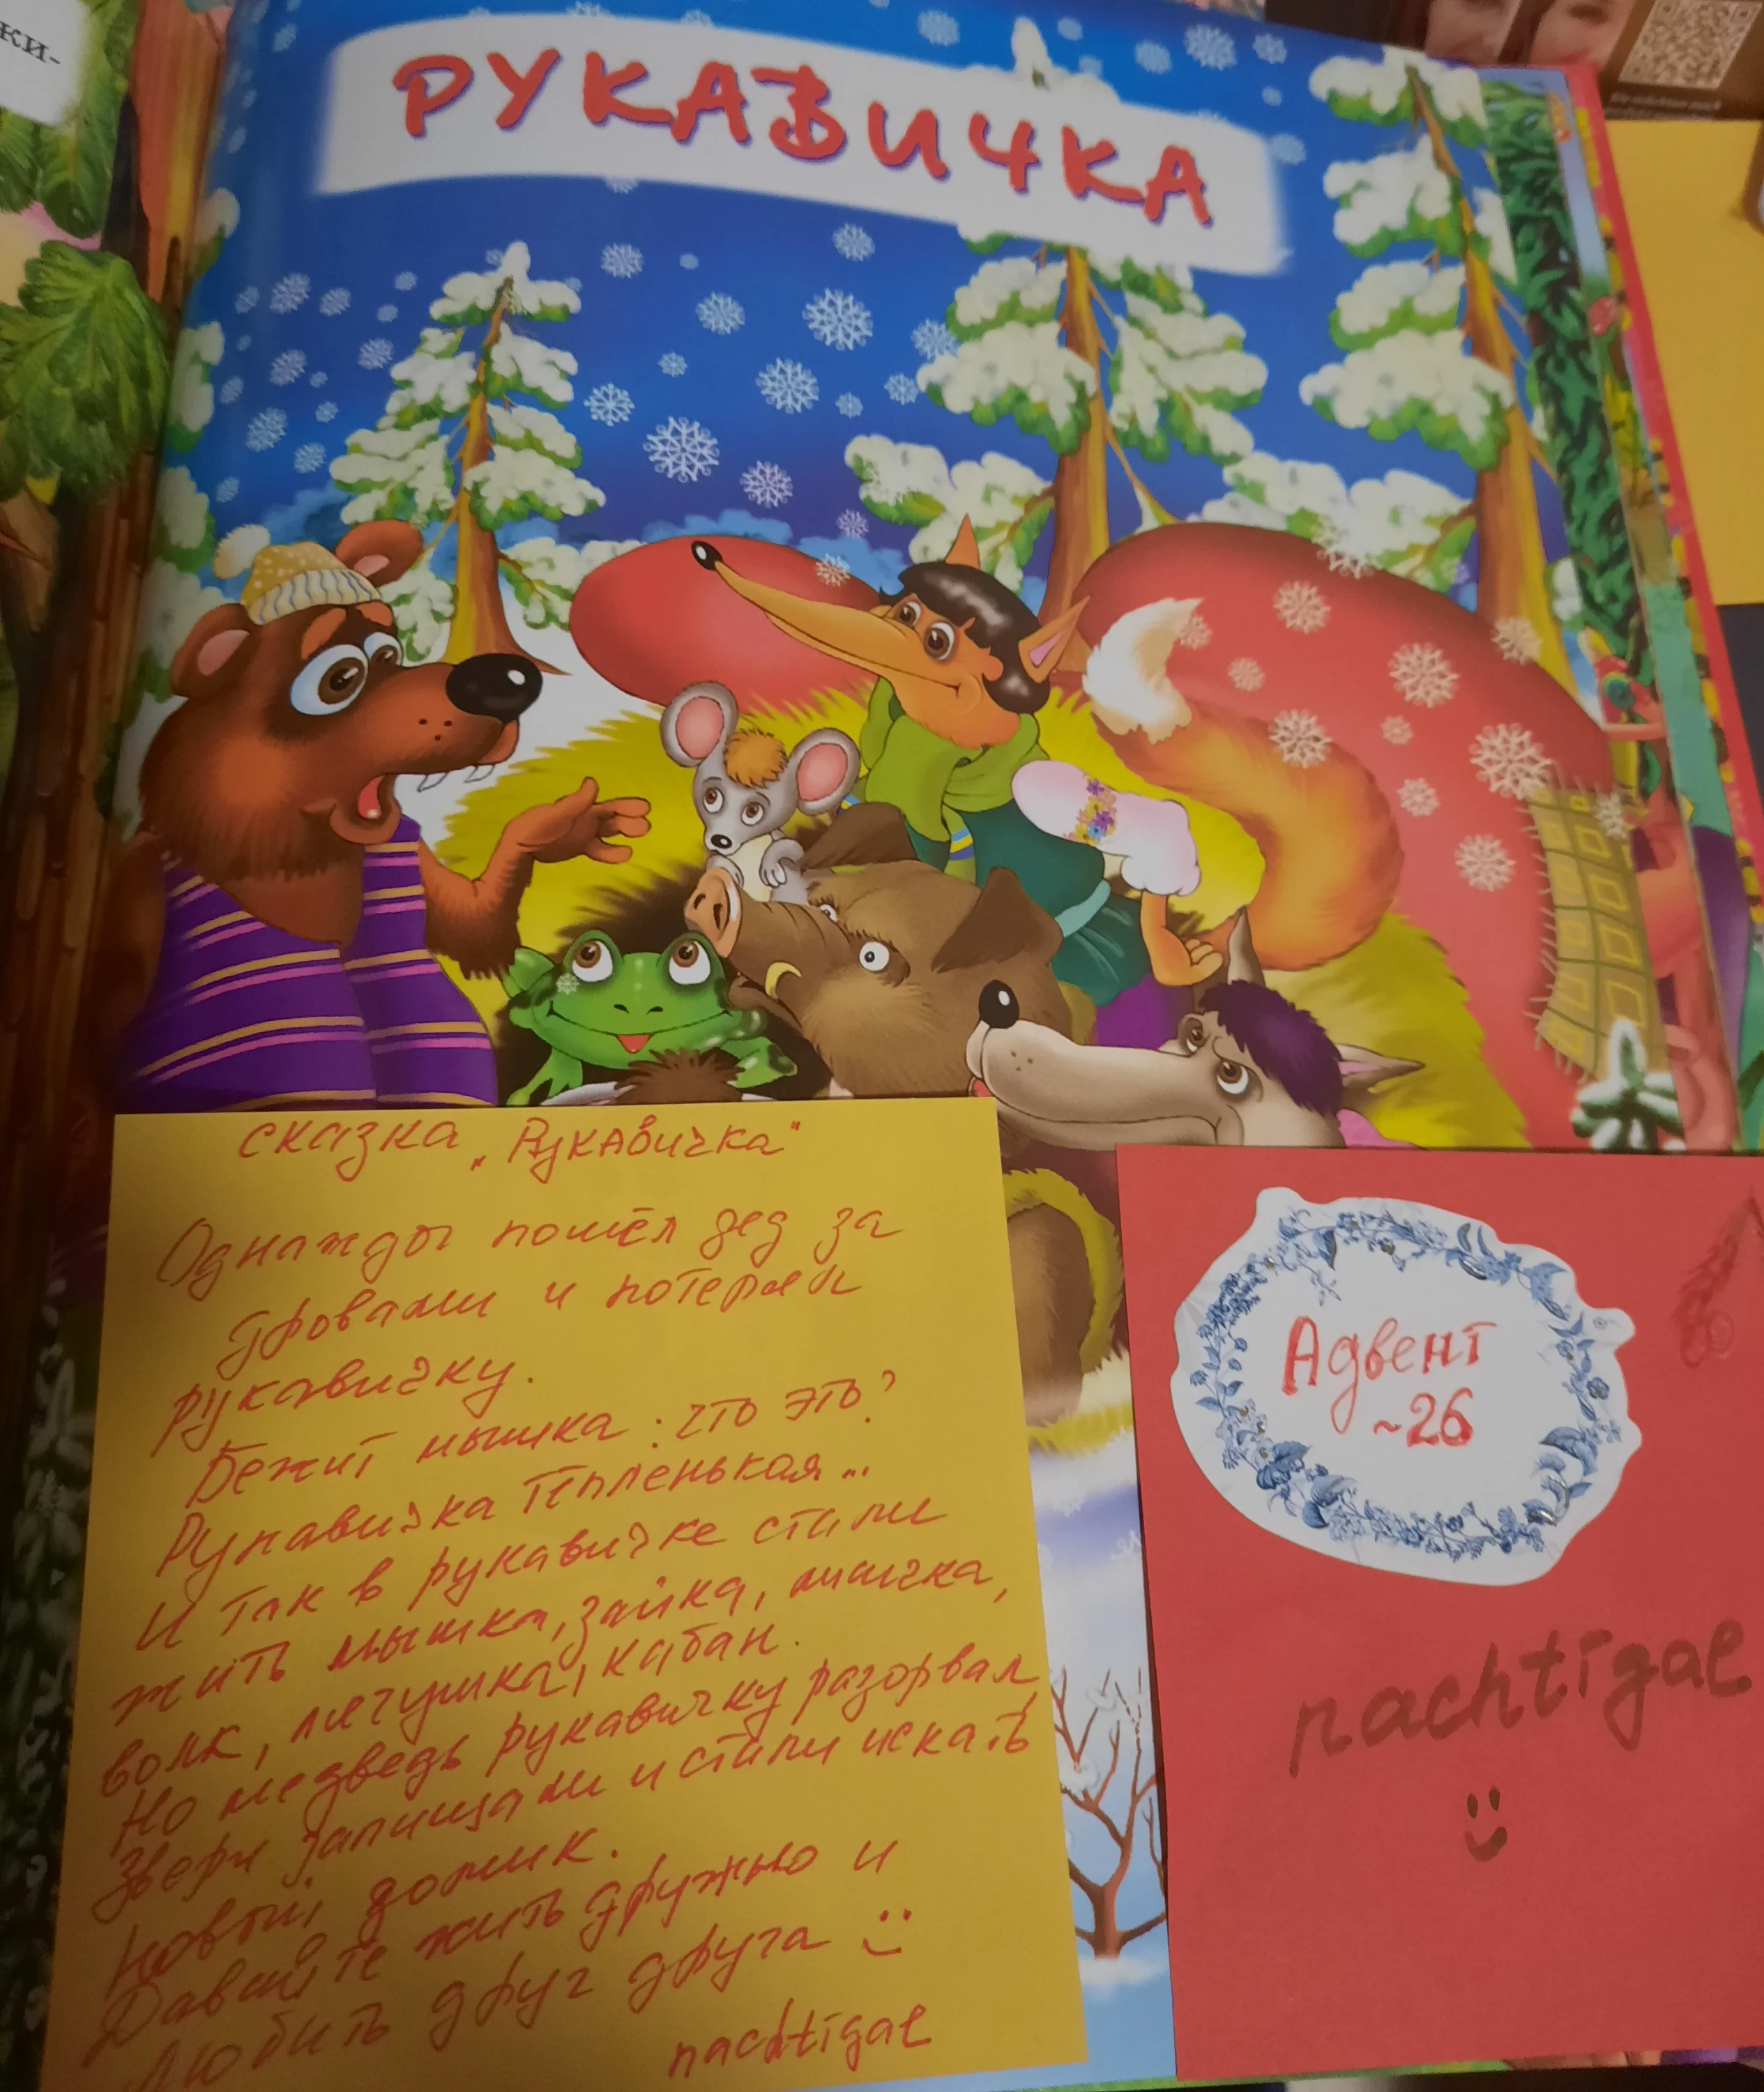 ки-
РУКАВИЧКА
сказка „Рукавичка"
Однажды пошёл дед за
дровами и потерял
рукавичку.
Бежит мышка: что это?
Рукавичка тёпленькая...
И так в рукавичке стали
жить мышка, зайка, лисичка,
волк, лягушка, кабан.
Но медведь рукавичку разорвал,
Звери запищали и стали искать
новый домик.
Давайте жить дружно и
любить друг друга
nachtigal
Адвент
~26
nachtigal